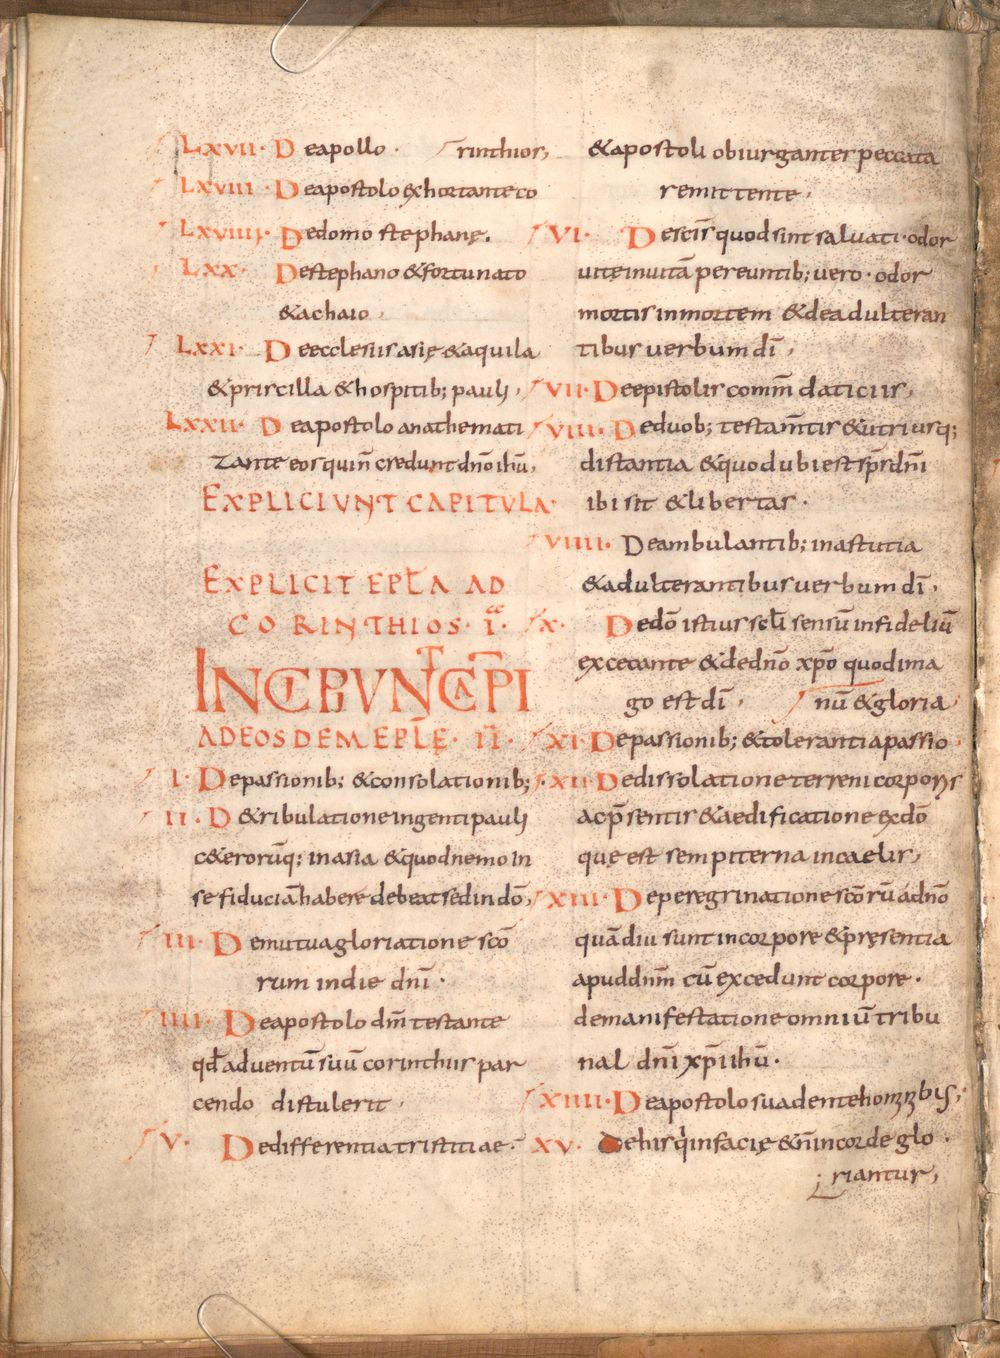 LXVII· De apollo ·
LXVIII De apostolo exhortante co
rinthios,
LXVIIII· De domo stephanę.
LXX· De stephano & fortunato
& achaio.
LXXI· De ecclesiis asię & aquila
& priscilla & hospitib; pauli,
LXXII· De apostolo anathemati
zante eos qui n̄ credunt dn̄o ihū,
EXPLICIUNT CAPITULA·
EXPLICIT EPLA AD
CORINTHIOS · I ·
INCIPIUNT CAPI
AD EOSDEM EPLĘ · II ·
I· De passionib; & consolationib;
II· De tribulatione ingenti pauli
c&erorūq; in asia & quod nemo in
se fiduciā habere debeat sed in dō,
III· De mutua gloriatione scō
rum in die dn̄i ·
IIII· De apostolo dm̄ testante
qđ aduentū suū corinthiis par
cendo distulerit,
V· De differentia tristitiae ·
& apostoli obiurganter peccata
remittente,
VI· De sc̄is quod sint saluati · odor
uitę in uitā pereuntib; uero · odor
mortis in mortem & de adulteran
tibus uerbum dī,
VII· De epistolis comm̄daticiis,
VIII· De duob; testam̄tis & utriusq;
distantia & quod ubi est sps̄ dn̄i
ibi sit & libertas ·
VIIII· De ambulantib; in astutia
& adulterantibus uerbum dī,
X· De dō istius scłi sensū infideliū
excecante & de dn̄o xp̄o quod ima
go est dī,
XI· De passionib; & tolerantia passio
nū & gloria
XII· De dissolatione terreni corporis
ac p̄sentis & aedificatione ex dō
quę est sempiterna in caelis,
XIII· De peregrinatione scōrū ad dn̄o
quādiu sunt in corpore & pręsentia
apud dnm̄ cū excedunt corpore ·
de manifestatione omniū tribu
nal dn̄i xp̄i ihū ·
XIIII· De apostolo suadente
XV· De his q̇ in facię & n̄ in corde glo
riantur,